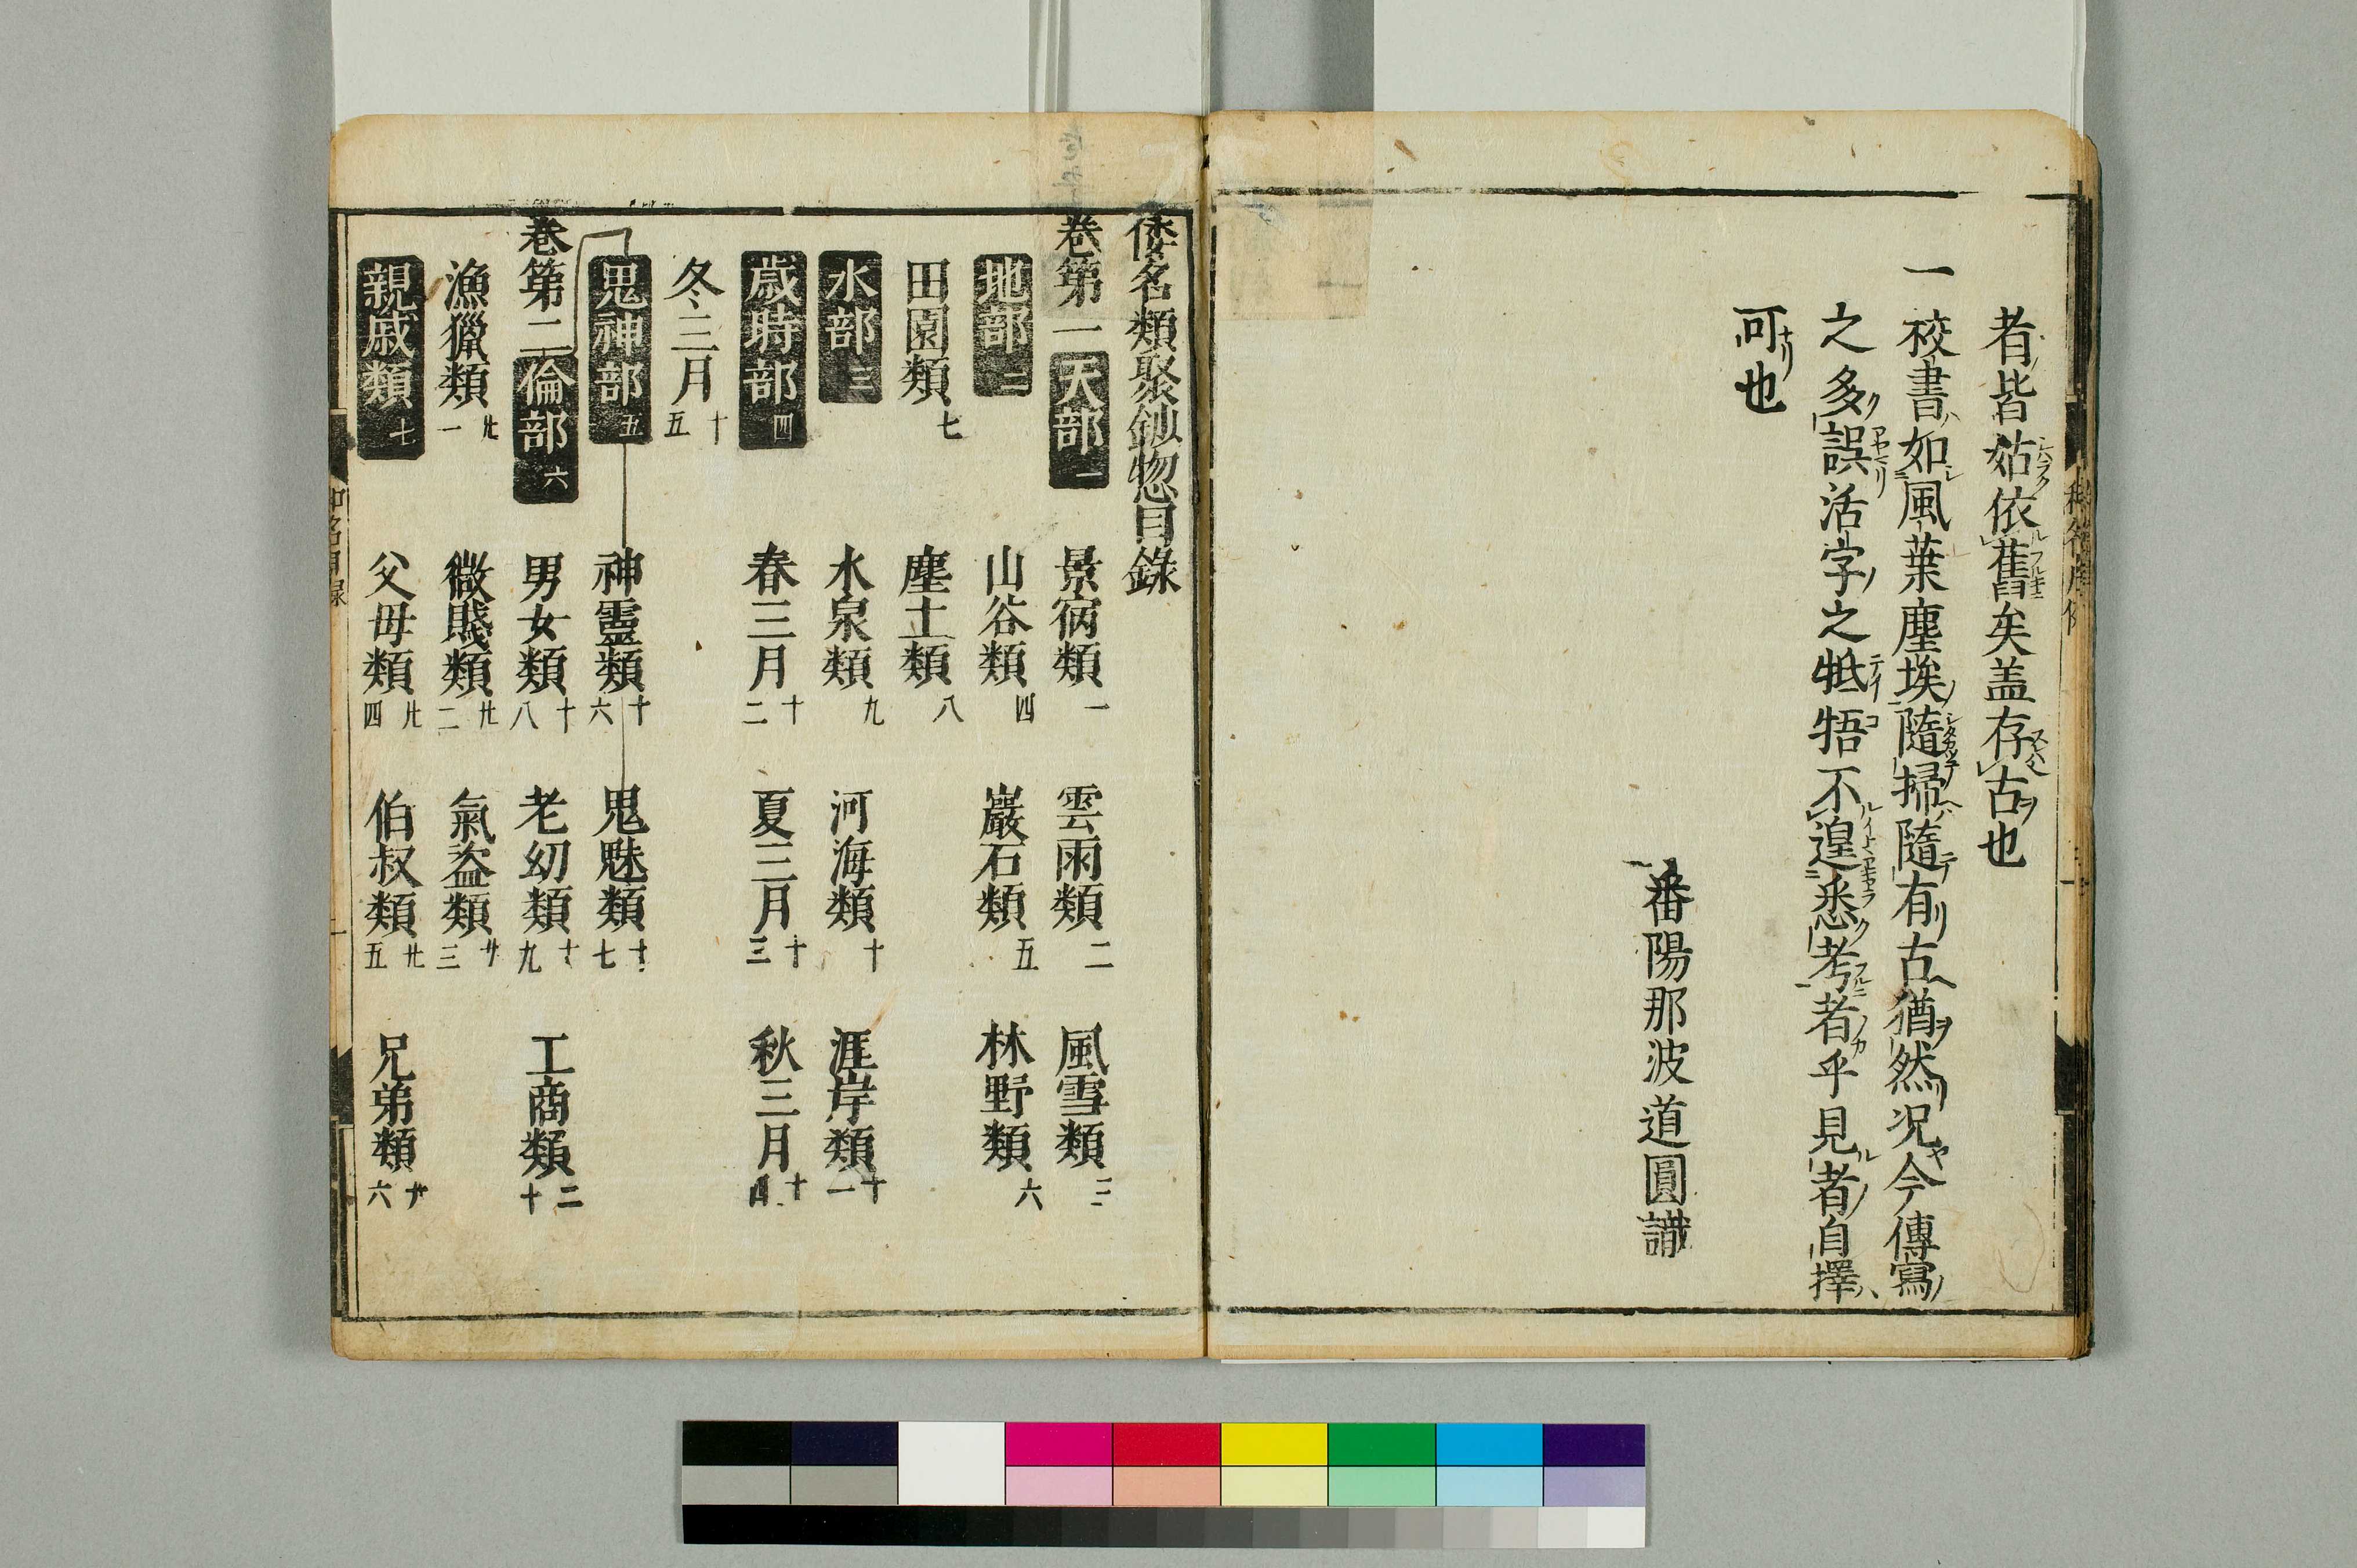 者皆姑依舊矣盖存古也
一 挍書如風葉塵埃隨掃隨有古猶然况今傳寫
之多誤活字之牴牾不遑悉考者乎見者自擇
可也
番陽那波道圓識
倭名類聚鈔惣目錄
卷第一 天部一 景宿類一 雲雨類二 風雪類三
地部二 山谷類四 巖石類五 林野類六
田園類七 塵土類八
水部三 水泉類九 河海類十 涯岸類十一
歳時部四 春三月十二 夏三月十三 秋三月十四
冬三月十五
鬼神部五 神靈類十六 鬼魅類十七
卷第二 倫部六 男女類十八 老幼類十九 工商類二十
漁獵類廿一 微賤類廿二 氣盗類廿三
親戚類七 父母類廿四 伯叔類廿五 兄弟類廿六